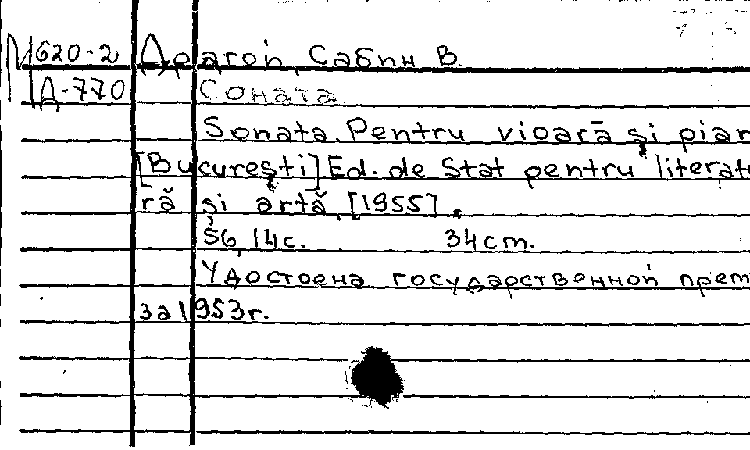 М620-2 Драгой, Сабин В.
Д-770 Соната
Sonata. Pentru vioară şi pian
[Bucureşti] Ed. de Stat pentru literatu
ră şi artă, [1955].
56, 14с. 34cm.
Удостоена государственной прем
за 1953г.